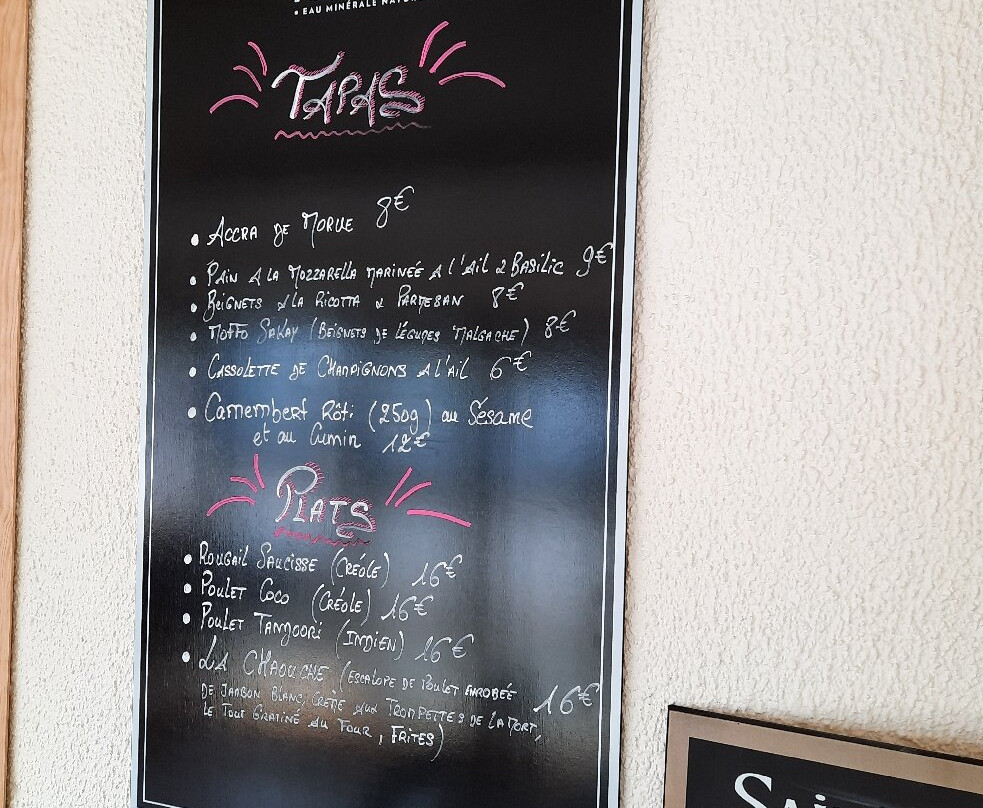 • EAU MINÉRALE
TAPAS
• ACCRA DE MORUE 8€
• PAIN A LA MOZZARELLA MARINÉE A l'AIL & BASILIC 9€
• BEIGNETS A LA RICOTTA & PARMESAN 8€
• MOFFO SAKAY (BEIGNETS DE LÉGUMES MALGACHE) 8€
• CASSOLETTE DE CHAMPIGNONS A l'AIL 6€
• Camembert Rôti (250g) au Sésame
et au Cumin 12€
PLATS
• ROUGAIL SAUCISSE (CRÉOLE) 16€
• POULET COCO (CRÉOLE) 16€
• POULET TANDOORI (INDIEN) 16€
• LA CHAOUCHE (ESCALOPE DE POULET ENROBÉE 16€
DE JAMBON BLANC, CRÈME AUX TROMPETTES DE LA MORT,
LE TOUT GRATINÉ AU FOUR, FRITES)